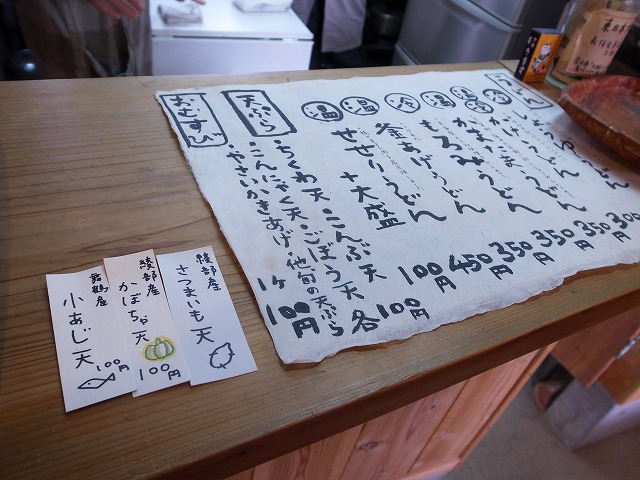 うどん
しょうゆうどん
300円
冷
かけうどん
350円
温
冷
かまたまうどん
350円
温
もろみうどん
350円
冷
釜あげうどん
350円
温
せせりうどん
450円
温
+大盛
100円
天ぷら
・ちくわ天 こんぶ天
・こんにゃく天 ごぼう天 各100円
・やさいかきあげ・他旬の天ぷら
おむすび
1ケ
100円
綾部産
さつまいも天
綾部産
かぼちゃ天
100円
舞鶴産
小あじ天
100円